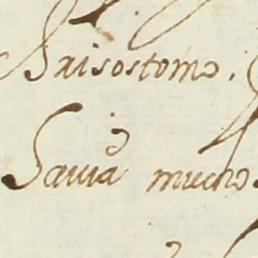 Grisostomo.
Sauia mucho